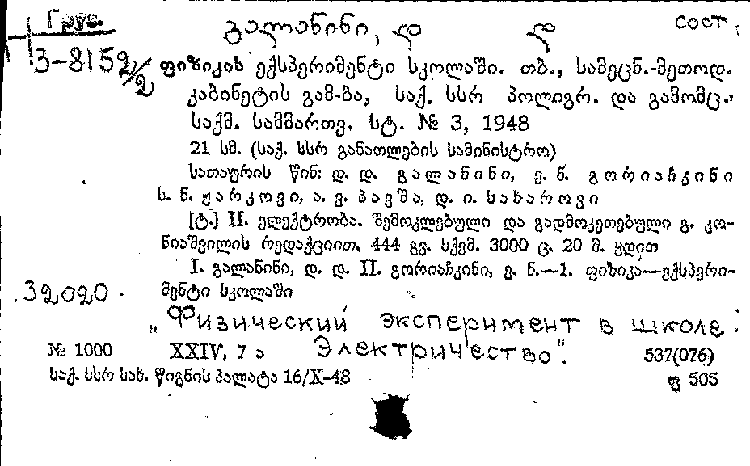 Груз.
გალანინი, დ დ сост.
3-8159/2
ფიზიკის ექსპერიმენტი სკოლაში. თბ., სამეცნ.-მეთოდ.
კაბინეტის გამ-ბა, საქ. სსრ პოლიგრ. და გამომც.
საქმ. სამმართვ. სტ. № 3, 1948
21 სმ. (საქ. სსრ განათლების სამინისტრო)
სათაურის წინ: დ. დ. გალანინი, ე. ნ. გორიაჩკინი
ს. ნ. ჟარკოვი, ა. ვ. პავშა, დ. ი. სახაროვი
[ტ.] II. ელექტრობა. შემოკლებული და გადმოკეთებული გ. კო-
ნიაშვილის რედაქციით. 444 გვ. სქემ. 3000 ც. 20 მ. ყდით
I. გალანინი, დ. დ. II. გორიაჩკინი, ე. ნ.—1. ფიზიკა—ექსპერი-
32020. მენტი სკოლაში
„Физический эксперимент в школе.
№ 1000 XXIV, 7 ა Электричество". 537(076)
საქ. სსრ სახ. წიგნის პალატა 16/X-48 ფ 505